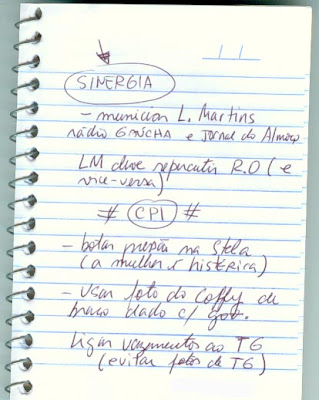 SINERGIA
- municiar L. Martins
rádio GAÚCHA e Jornal do Almoço
LM deve repercutir R.O (e
vice-versa)
# CPI #
- botar pressão na Stela
(a mulher é histérica)
- usar foto do Coffy de
braço dado c/ gov.
Ligar vazamentos ao TG
(evitar fotos de TG)